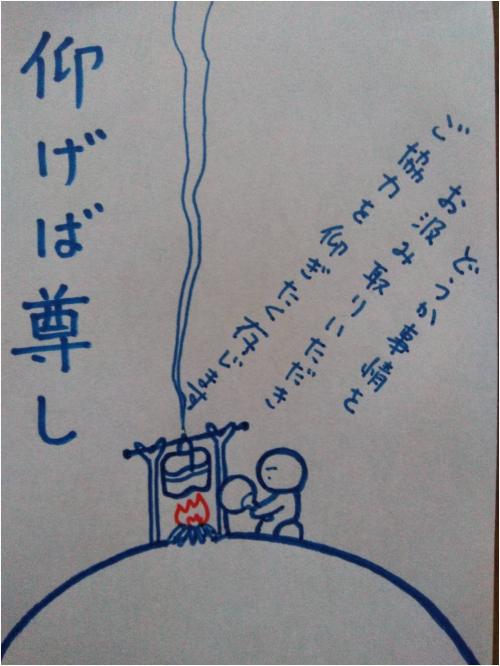 仰げば尊し
どうか事情を
お汲み取りいただき
ご協力を仰ぎたく存じます